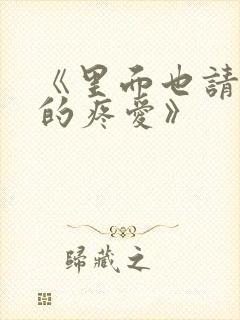 《里而也請
的疼愛》
歸藏之